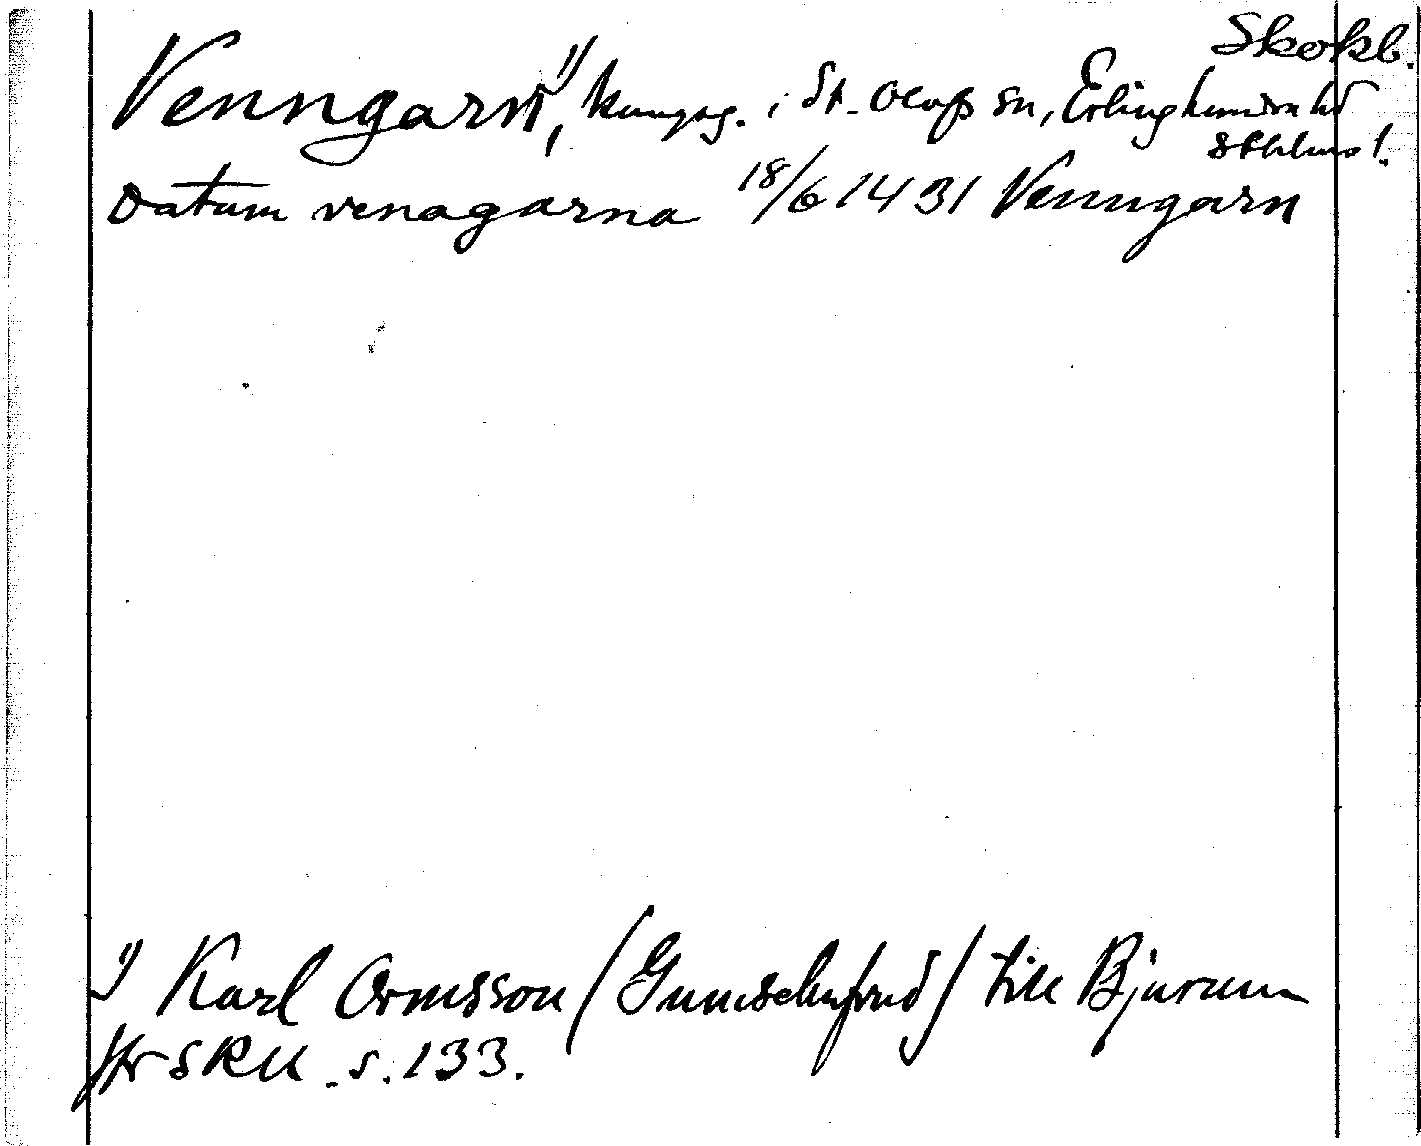 Skokl.
Venngarn 1), kungsg. i St. Olofs sn, Erlinghundra hd
Sthlms l.
Datum venagarna 18/6 1431 Venngarn
1) Karl Ormsson (Gumsehufvud) till Bjurum
Jfr SRU s. 133.